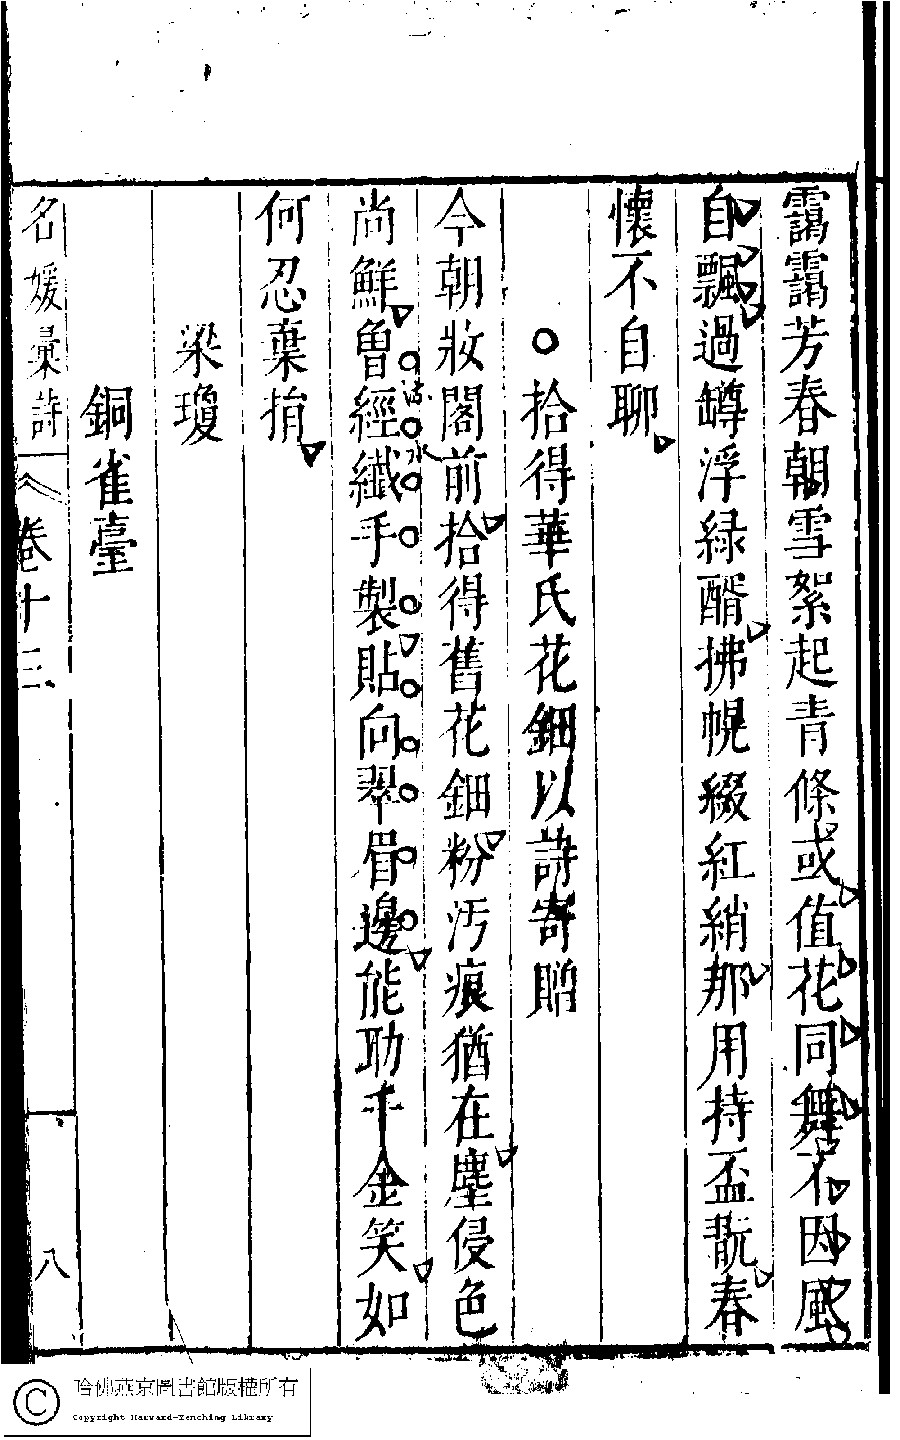 靄靄芳春朝雪絮起青條或值花同舞不因風
自飄過罇浮綠醑拂幌綴紅綃那用持盃翫春
懷不自聊
拾得華氏花鈿以詩寄贈
今朝妝閣前拾得舊花鈿粉汚痕猶在塵侵色
尚鮮曾經纖手製貼向翠眉邊能助千金笑如
何忍棄捐
梁瓊
銅雀臺
名媛彙詩
卷十三
八
哈佛燕京圖書館版權所有
Copyright Harvard-Yenching Library